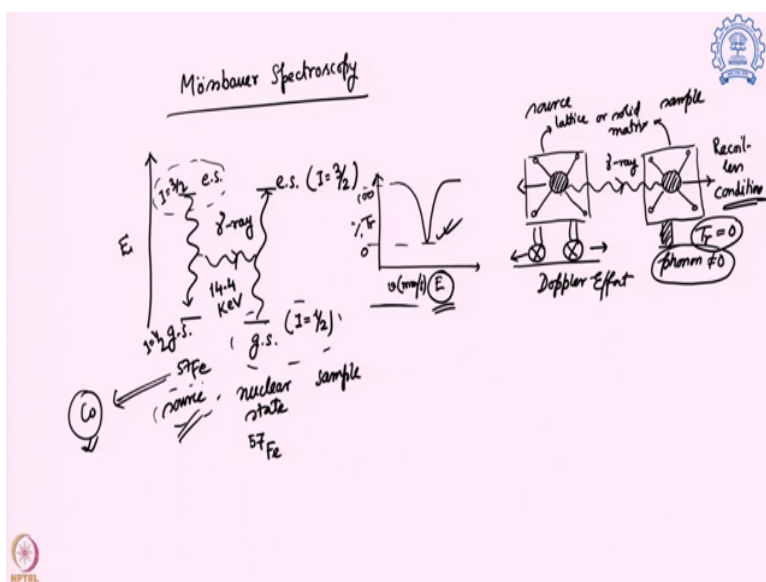 Mössbauer Spectroscopy
E
I=3/2 e.s.
e.s. (I=3/2)
γ-ray
14.4
KeV
I=1/2 g.s.
g.s. (I=1/2)
57Fe
(source
nuclear
state
57Fe
sample
Co
100
% Tr
0
v(mm/s) E
source
lattice or solid
matrix
sample
γ-ray
Recoil-
less
condition
Tr = 0
phonon ≠ 0
Doppler Effect
NPTEL